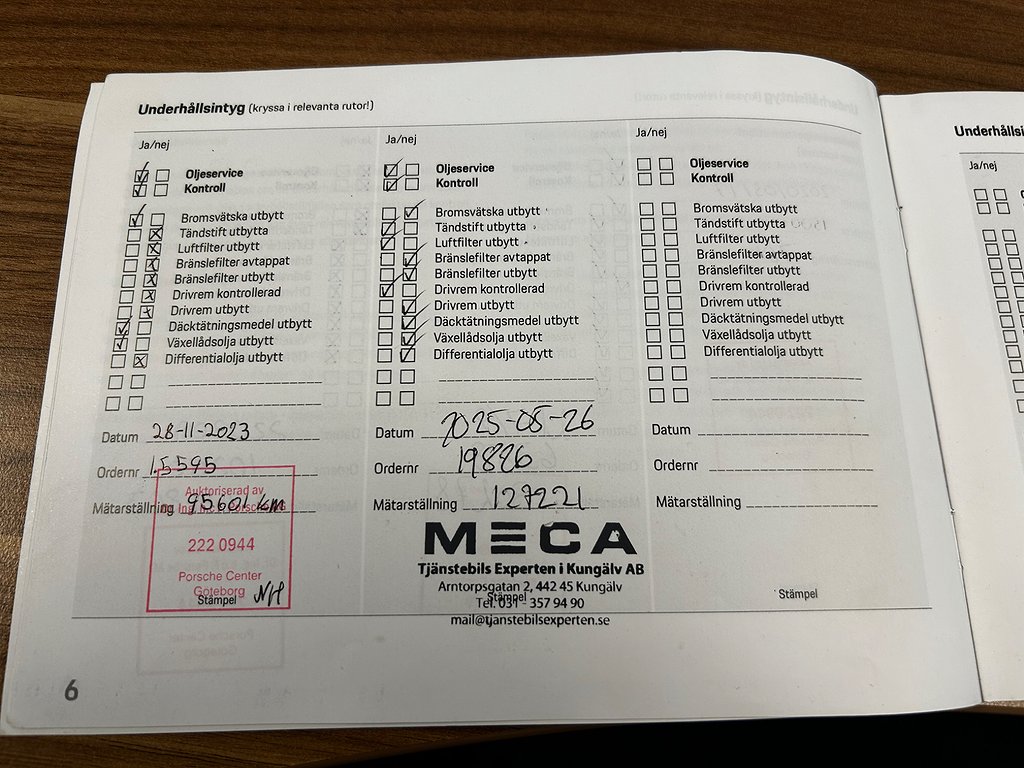 Underhållsintyg (kryssa i relevanta rutor!)
Ja/nej
Oljeservice
Kontroll
Bromsvätska utbytt
Tändstift utbytta
Luftfilter utbytt
Bränslefilter avtappat
Bränslefilter utbytt
Drivrem kontrollerad
Drivrem utbytt
Däcktätningsmedel utbytt
Växellådsolja utbytt
Differentialolja utbytt
Datum 28-11-2023
Ordernr 15595
Mätarställning 95601 km
Auktoriserad av
222 0944
Porsche Center
Göteborg
Stämpel NH
Ja/nej
Oljeservice
Kontroll
Bromsvätska utbytt
Tändstift utbytta
Luftfilter utbytt
Bränslefilter avtappat
Bränslefilter utbytt
Drivrem kontrollerad
Drivrem utbytt
Däcktätningsmedel utbytt
Växellådsolja utbytt
Differentialolja utbytt
Datum 2025-05-26
Ordernr 19826
Mätarställning 127221
MECA
Tjänstebils Experten i Kungälv AB
Arntorpsgatan 2, 442 45 Kungälv
Stämpel
Tel. 031 - 357 94 90
mail@tjanstebilsexperten.se
Ja/nej
Oljeservice
Kontroll
Bromsvätska utbytt
Tändstift utbytta
Luftfilter utbytt
Bränslefilter avtappat
Bränslefilter utbytt
Drivrem kontrollerad
Drivrem utbytt
Däcktätningsmedel utbytt
Växellådsolja utbytt
Differentialolja utbytt
Datum
Ordernr
Mätarställning
Stämpel
6
Ja/nej